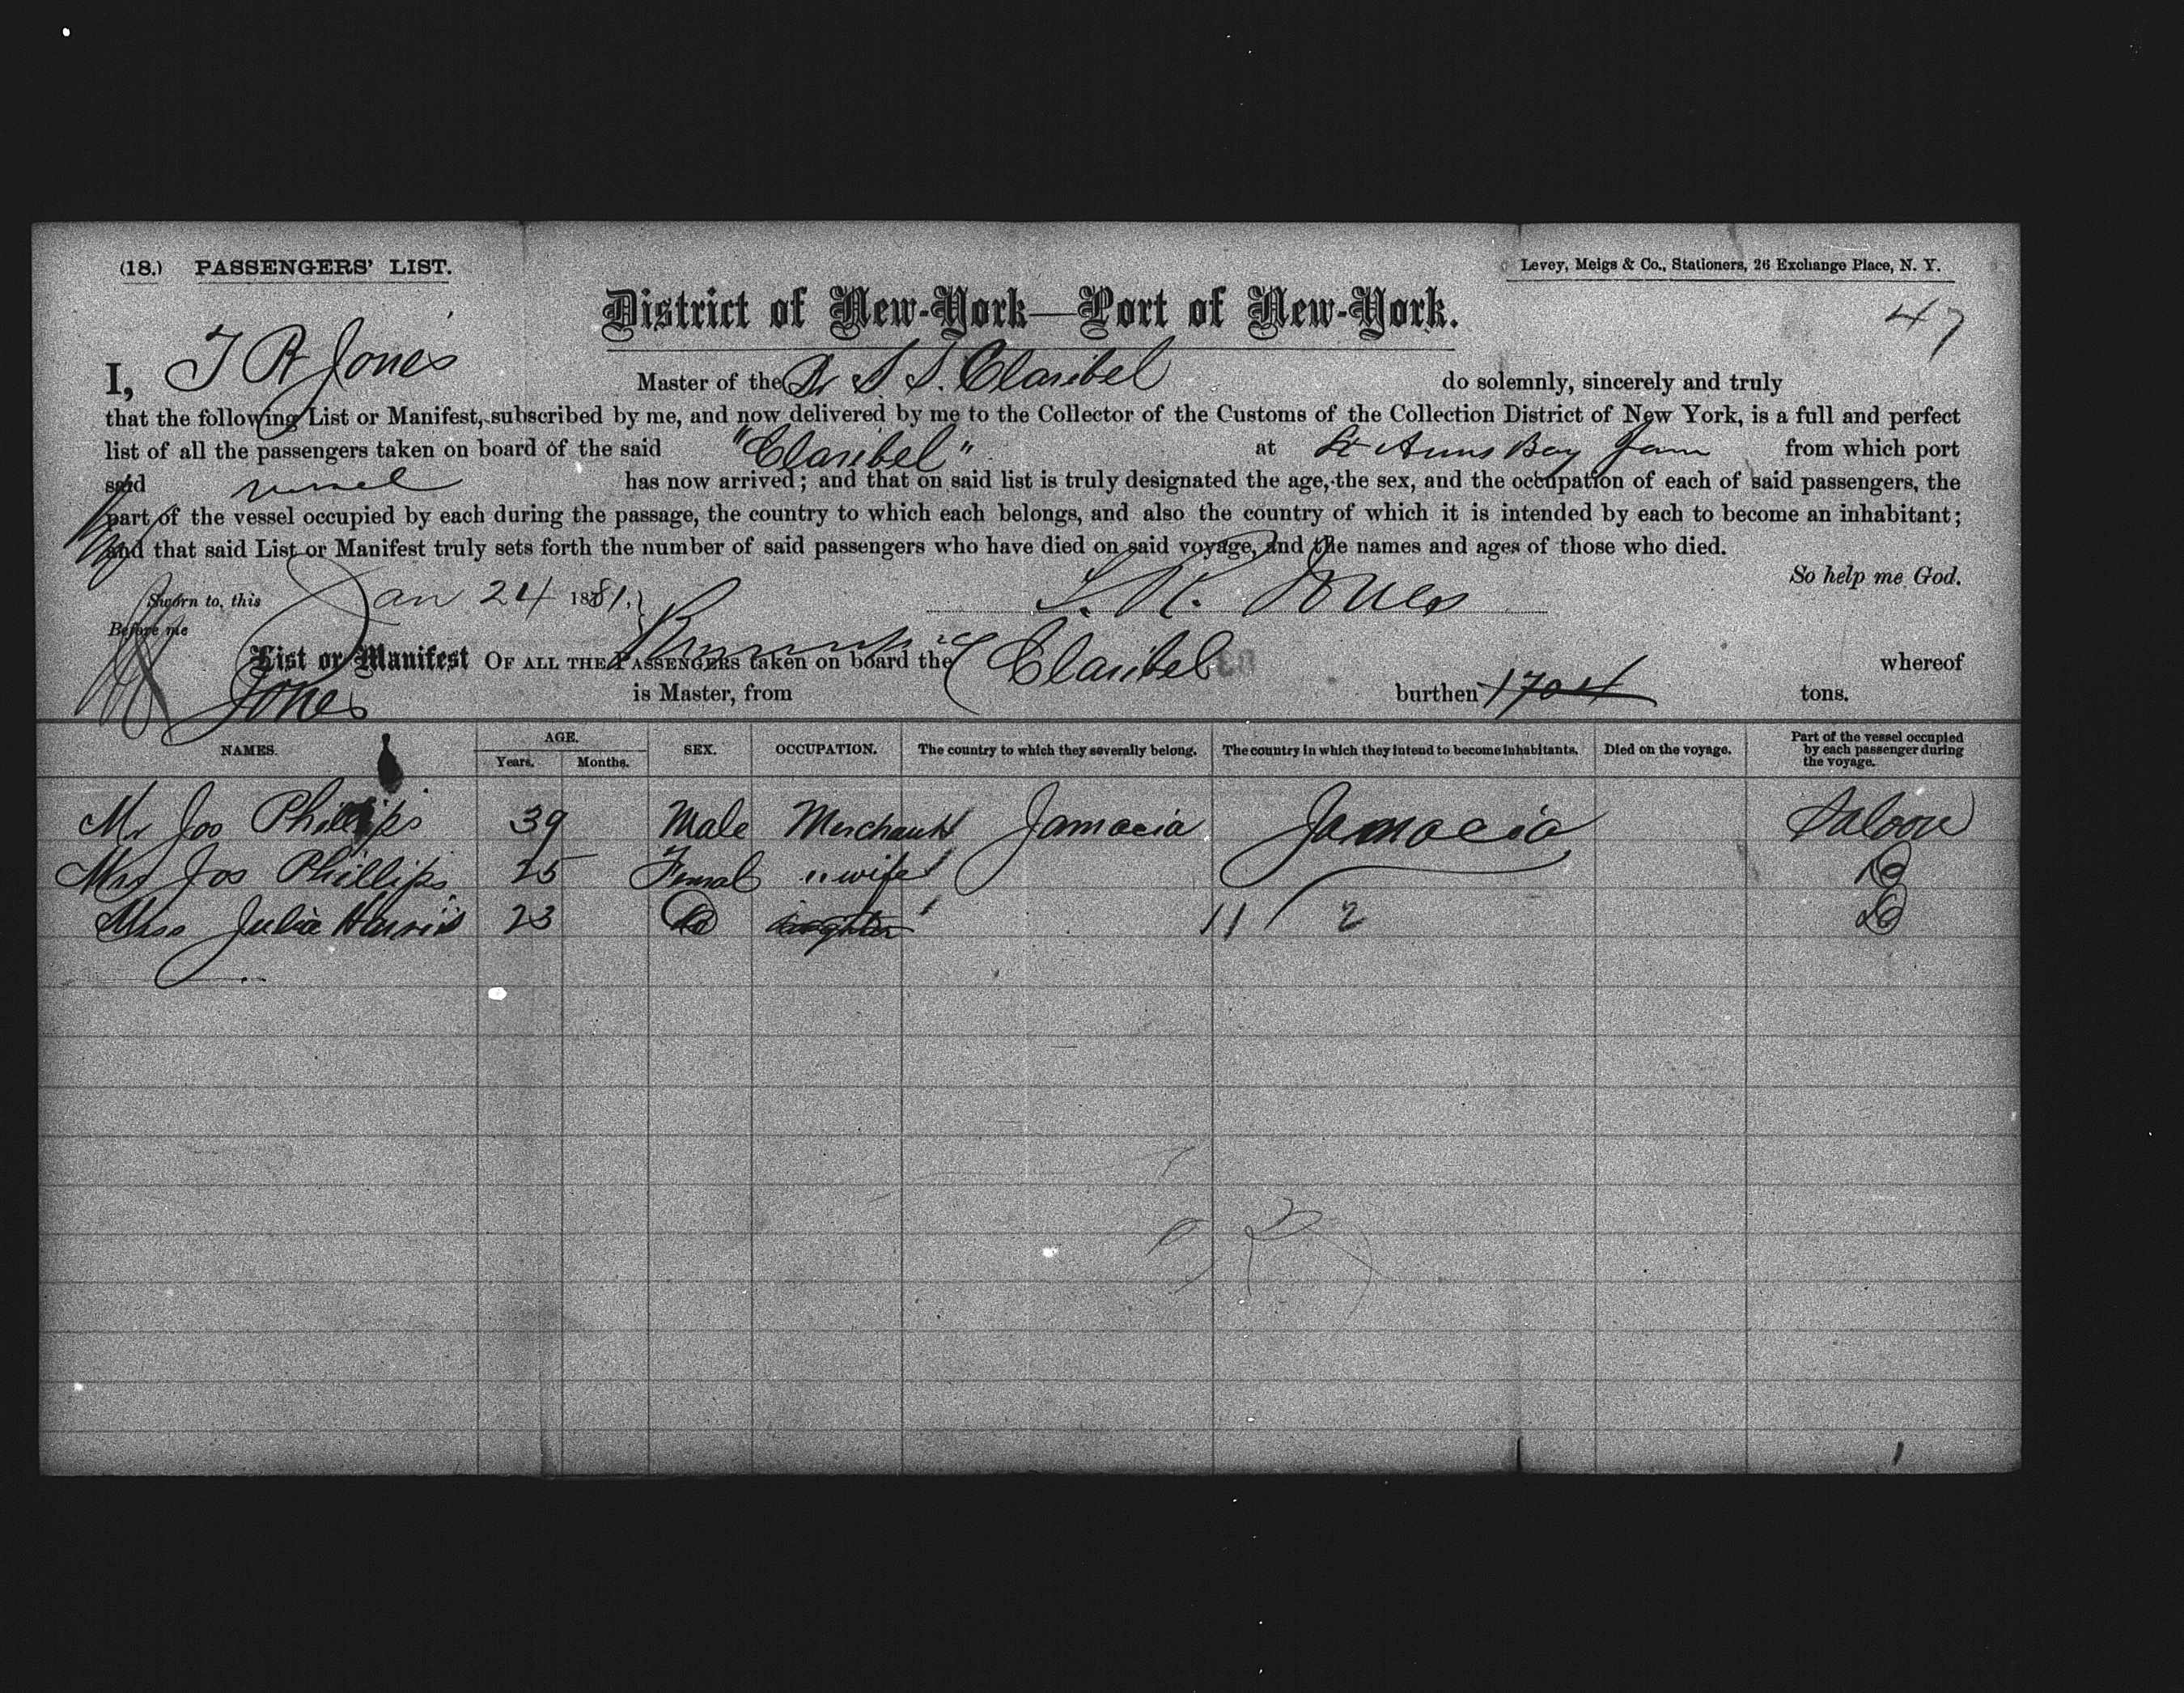 (18.) PASSENGERS' LIST.
Levey, Meigs & Co., Stationers, 26 Exchange Place, N. Y.
47
District of New-York—Port of New-York.
I, T R Jones Master of the Br S S. Claribel do solemnly, sincerely and truly
that the following List or Manifest, subscribed by me, and now delivered by me to the Collector of the Customs of the Collection District of New York, is a full and perfect
list of all the passengers taken on board of the said "Claribel" at St Anns Bay Jam from which port
said vessel has now arrived; and that on said list is truly designated the age, the sex, and the occupation of each of said passengers, the
part of the vessel occupied by each during the passage, the country to which each belongs, and also the country of which it is intended by each to become an inhabitant;
and that said List or Manifest truly sets forth the number of said passengers who have died on said voyage, and the names and ages of those who died.
So help me God.
Sworn to, this Jan 24 1881. T. R. Jones
Before me
List or Manifest OF ALL THE PASSENGERS taken on board the Claribel whereof
Jones is Master, from burthen 1704 tons.
NAMES. AGE. Years. Months. SEX. OCCUPATION. The country to which they severally belong. The country in which they intend to become inhabitants. Died on the voyage. Part of the vessel occupied by each passenger during the voyage.
Mr Jos Phillips 39 Male Merchant Jamacia Jamacia Saloon
Mrs Jos Phillips 25 Femal " wife Do
Miss Julia Harris 23 Do daughter 11 2 Do